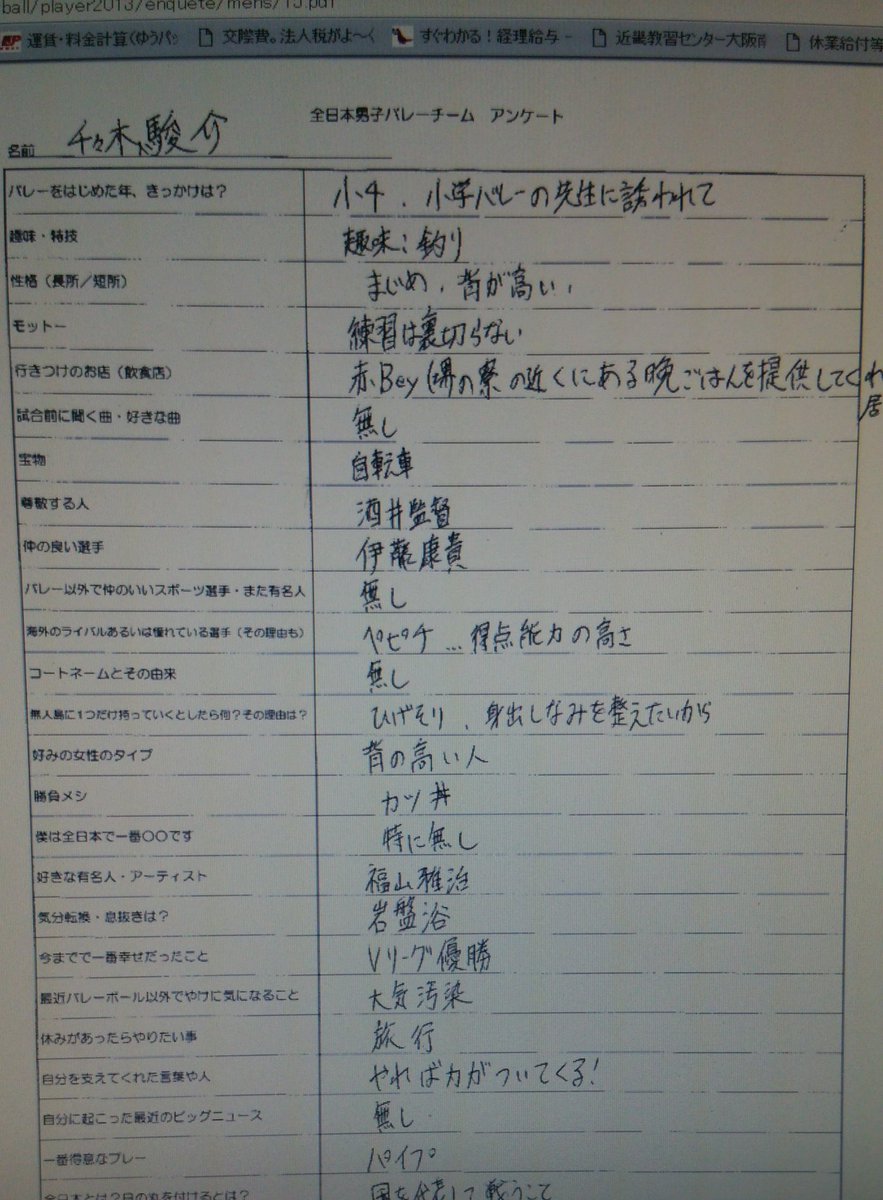 ball/player2013/enquete/mens/15.pdf
運賃・料金計算(ゆうパッ 交際費。法人税がよ～く すぐわかる！経理給与 - 近畿教習センター大阪 休業給付等
全日本男子バレーチーム　アンケート
名前 千々木駿介
バレーをはじめた年、きっかけは？ 小4．小学バレーの先生に誘われて
趣味・特技 趣味：釣り
性格（長所／短所） まじめ、背が高い、
モットー 練習は裏切らない
行きつけのお店（飲食店） 赤Bey（堺の寮の近くにある晩ごはんを提供してくれ
居
試合前に聞く曲・好きな曲 無し
宝物 自転車
尊敬する人 酒井監督
仲の良い選手 伊藤康貴
バレー以外で仲のいいスポーツ選手・また有名人 無し
海外のライバルあるいは憧れている選手（その理由も） ペピチ…得点能力の高さ
コートネームとその由来 無し
無人島に1つだけ持っていくとしたら何？その理由は？ ひげそり、身出しなみを整えたいから
好みの女性のタイプ 背の高い人
勝負メシ カツ丼
僕は全日本で一番〇〇です 特に無し
好きな有名人・アーティスト 福山雅治
気分転換・息抜きは？ 岩盤浴
今までで一番幸せだったこと Vリーグ優勝
最近バレーボール以外でやけに気になること 大気汚染
休みがあったらやりたい事 旅行
自分を支えてくれた言葉や人 やれば力がついてくる！
自分に起こった最近のビッグニュース 無し
一番得意なプレー パイプ
全日本とは？日の丸を付けるとは？ 国を代表して戦うこと